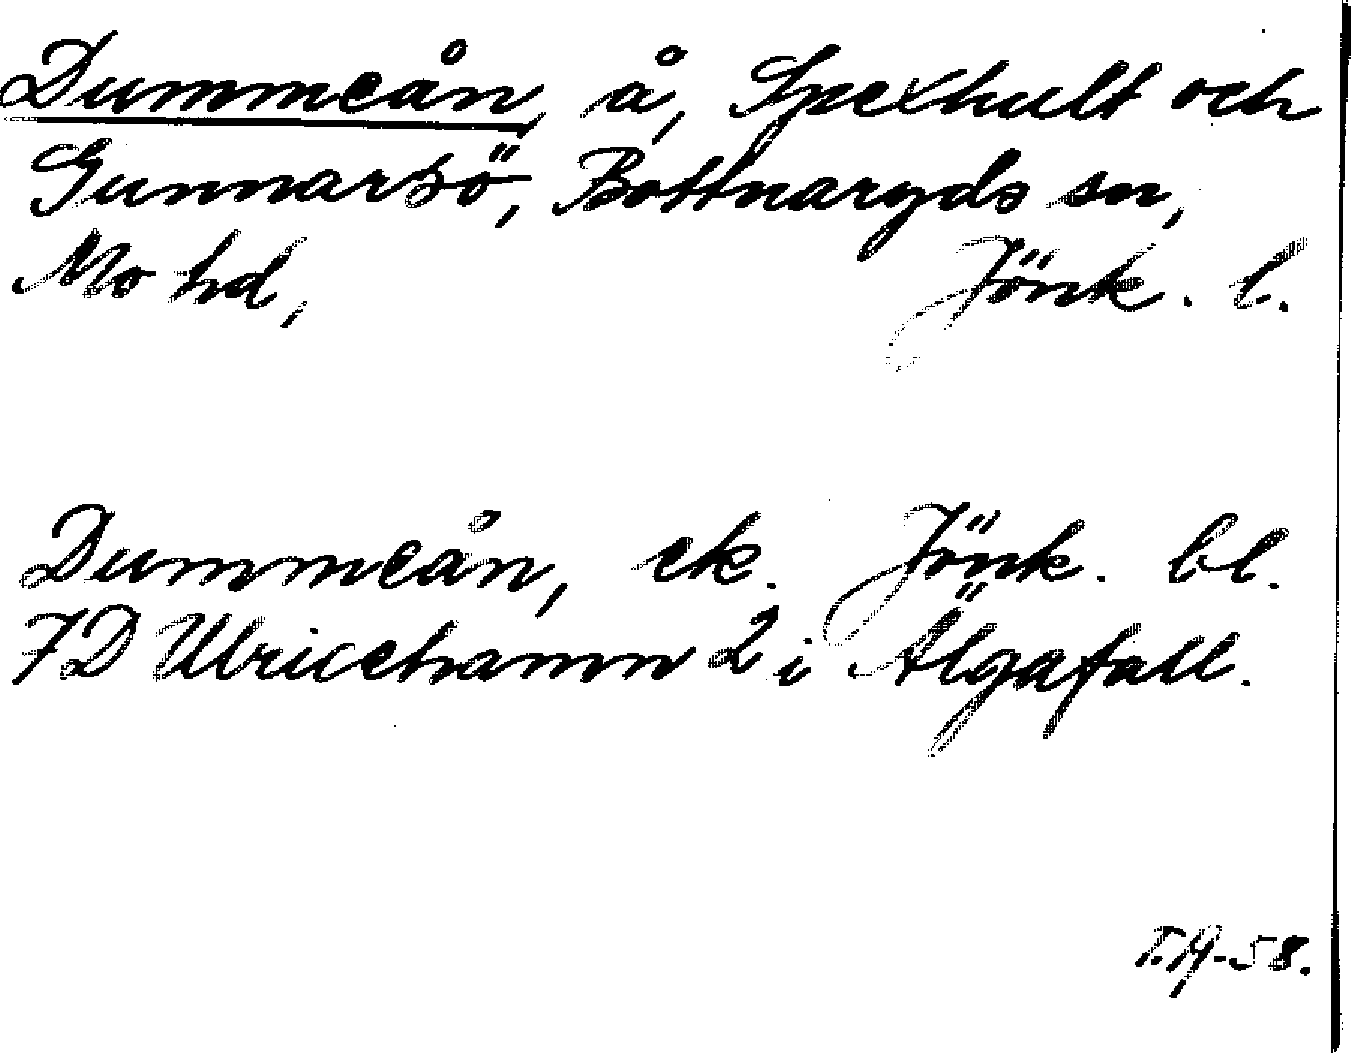 Dummeån, å, Spexhult och
Gunnarsö, Bottnaryds sn,
Mo hd, Jönk. l.
Dummeån, ek. Jönk. bl.
7D Ulricehamn 2 i Älgafall.
58.